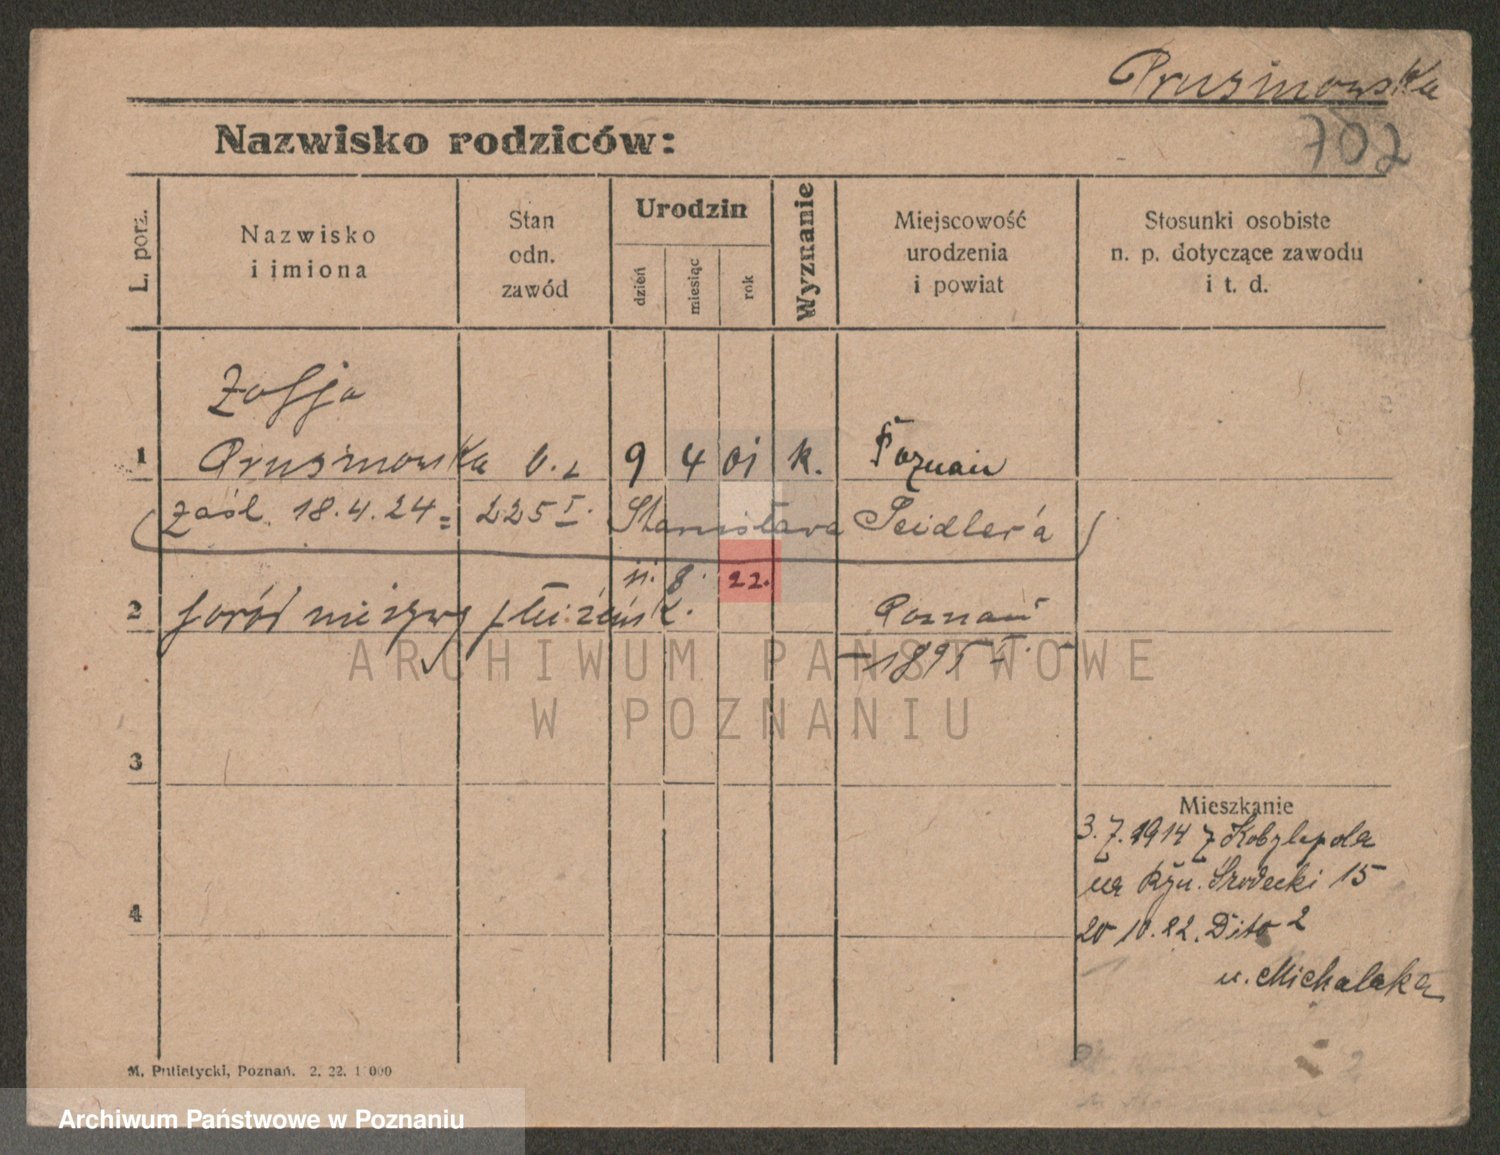 Prusinowska
702
Nazwisko rodziców:
L. porz.
Nazwisko
i imiona
Stan
odn.
zawód
Urodzin
dzień
miesiąc
rok
Wyznanie
Miejscowość
urodzenia
i powiat
Stosunki osobiste
n. p. dotyczące zawodu
i t. d.
Zofja
1 Prusinowska 9 4 01 k. Poznań
(zaśl. 18.4.24 = 225 I. Stanisława Seidler'a)
11. 8. 22.
2 poród nieżywy Poznań
- 1895 I. -
3
Mieszkanie
3. 7. 1914 z Kobylepola
na Ryn. Środecki 15
4
20 10. 22. Dito 2
u. Michalaka
M. Putiatycki, Poznań. 2. 22. 1 000
ARCHIWUM PAŃSTWOWE
W POZNANIU
Archiwum Państwowe w Poznaniu